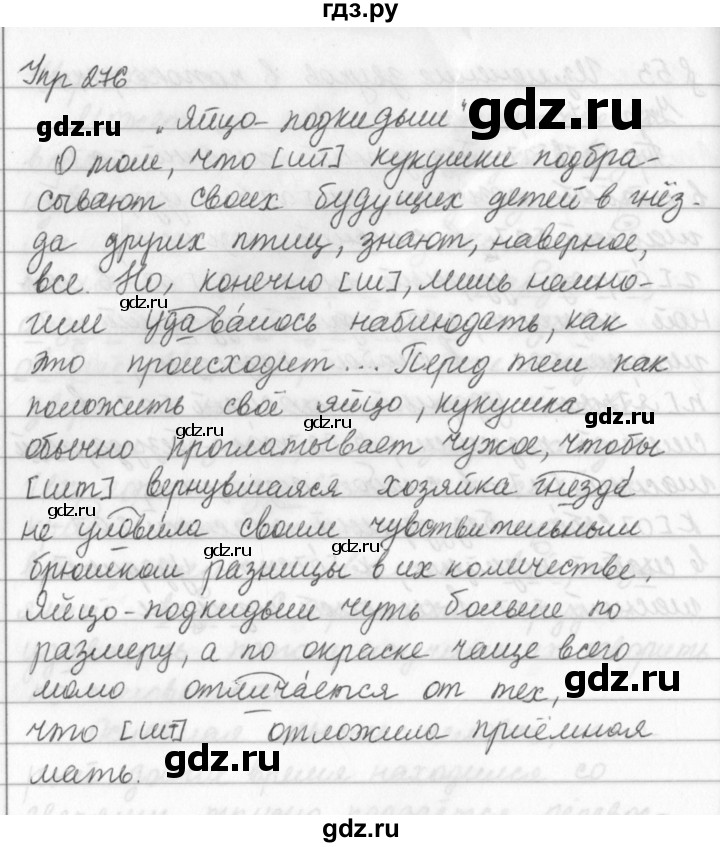 гдз.ру
Упр 276
gdz.ru
„Яйцо-подкидыш“
gdz.ru
О том, что [шт] кукушки подбра-
сывают своих будущих детей в гнёз-
да других птиц, знают, наверное,
все. Но, конечно [ш], лишь немно-
gdz.ru
gdz.ru
гим удавалось наблюдать, как
это происходит... Перед тем как
положить своё яйцо, кукушка
gdz.ru
gdz.ru
gdz.ru
обычно проглатывает чужое, чтобы
[шт] вернувшаяся хозяйка гнезда
gdz.ru
не уловила своим чувствительным
gdz.ru
gdz.ru
брюшком разницы в их количестве.
Яйцо-подкидыш чуть больше по
размеру, а по окраске чаще всего
gdz.ru
gdz.ru
мало отличается от тех,
что [шт] отложила приёмная
gdz.ru
мать.
gdz.ru